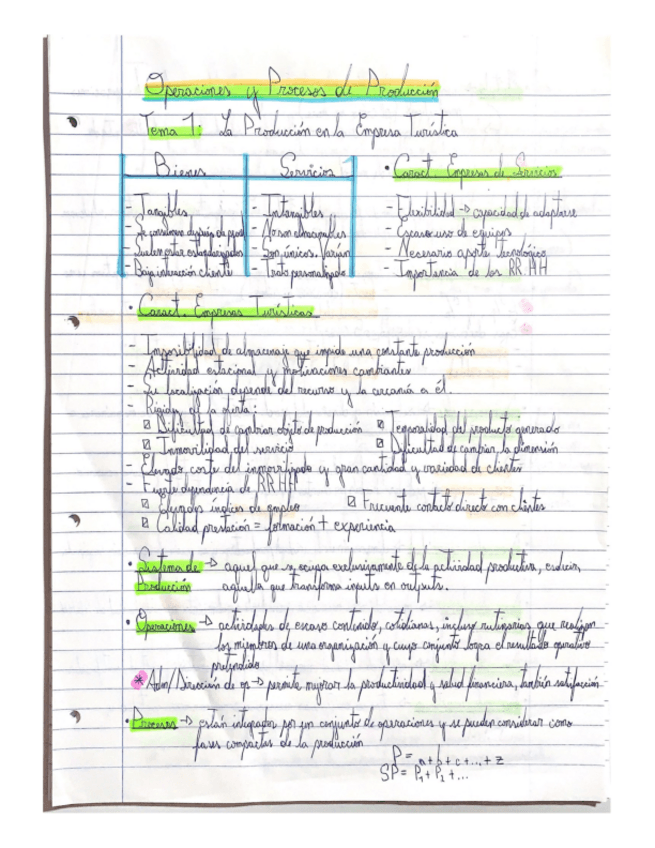 Operaciones y Procesos de Producción
Tema 1: La Producción en la Empresa Turística
Bienes
- Tangibles
- Se consumen después de prod
- Suelen estar estandarizados
- Baja interacción cliente
Servicios
- Intangibles
- No son almacenables
- Son únicos, Varían
- Trato personalizado
• Caract. Empresas de Servicios
- Flexibilidad → capacidad de adaptarse
- Escaso uso de equipos
- Necesario aporte tecnológico
- Importancia de los RR.HH
• Caract. Empresas Turísticas
- Imposibilidad de almacenaje que impide una constante producción
- Actividad estacional y motivaciones cambiantes
- Su localización depende del recurso y la cercanía a él.
- Rigidez de la oferta:
Dificultad de cambiar objeto de producción
Temporalidad del producto generado
Inmovilidad del servicio
Dificultad de cambiar la dimensión
- Elevado coste del inmovilizado y gran cantidad y variedad de clientes
- Fuerte dependencia de RRHH
Elevados índices de empleo
Frecuente contacto directo con clientes
Calidad prestación = formación + experiencia
• Sistema de Producción → aquel que se ocupa exclusivamente de la actividad productiva, es decir,
aquella que transforma inputs en outputs.
• Operaciones → actividades de escaso contenido, cotidianas, incluso rutinarias que realizan
los miembros de una organización y cuyo conjunto logra el resultado operativo
pretendido
* Adm/Dirección de op → permite mejorar la productividad y salud financiera, también satisfacción
• Procesos → están integrados por un conjunto de operaciones y se pueden considerar como
fases compactas de la producción
P = a+b+c+...+z
SP = P₁ + P₂ + ...